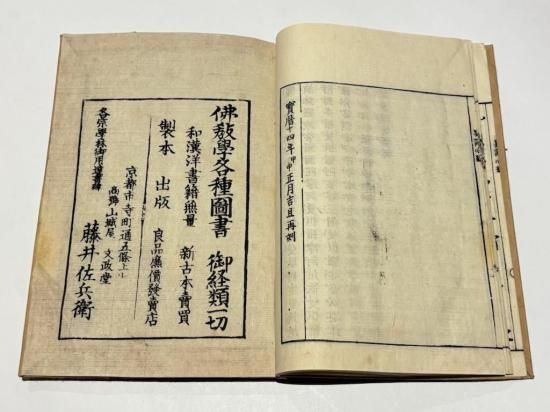 寶曆十四年甲申正月吉旦再刻
佛敎學各種圖書 御経類一切
和漢洋書籍無量 新古本賣買
製本 出版 良品廉價發賣店
京都市寺町通五條上ル
商號山城屋 文政堂
各宗學林御用達書肆 藤井佐兵衛